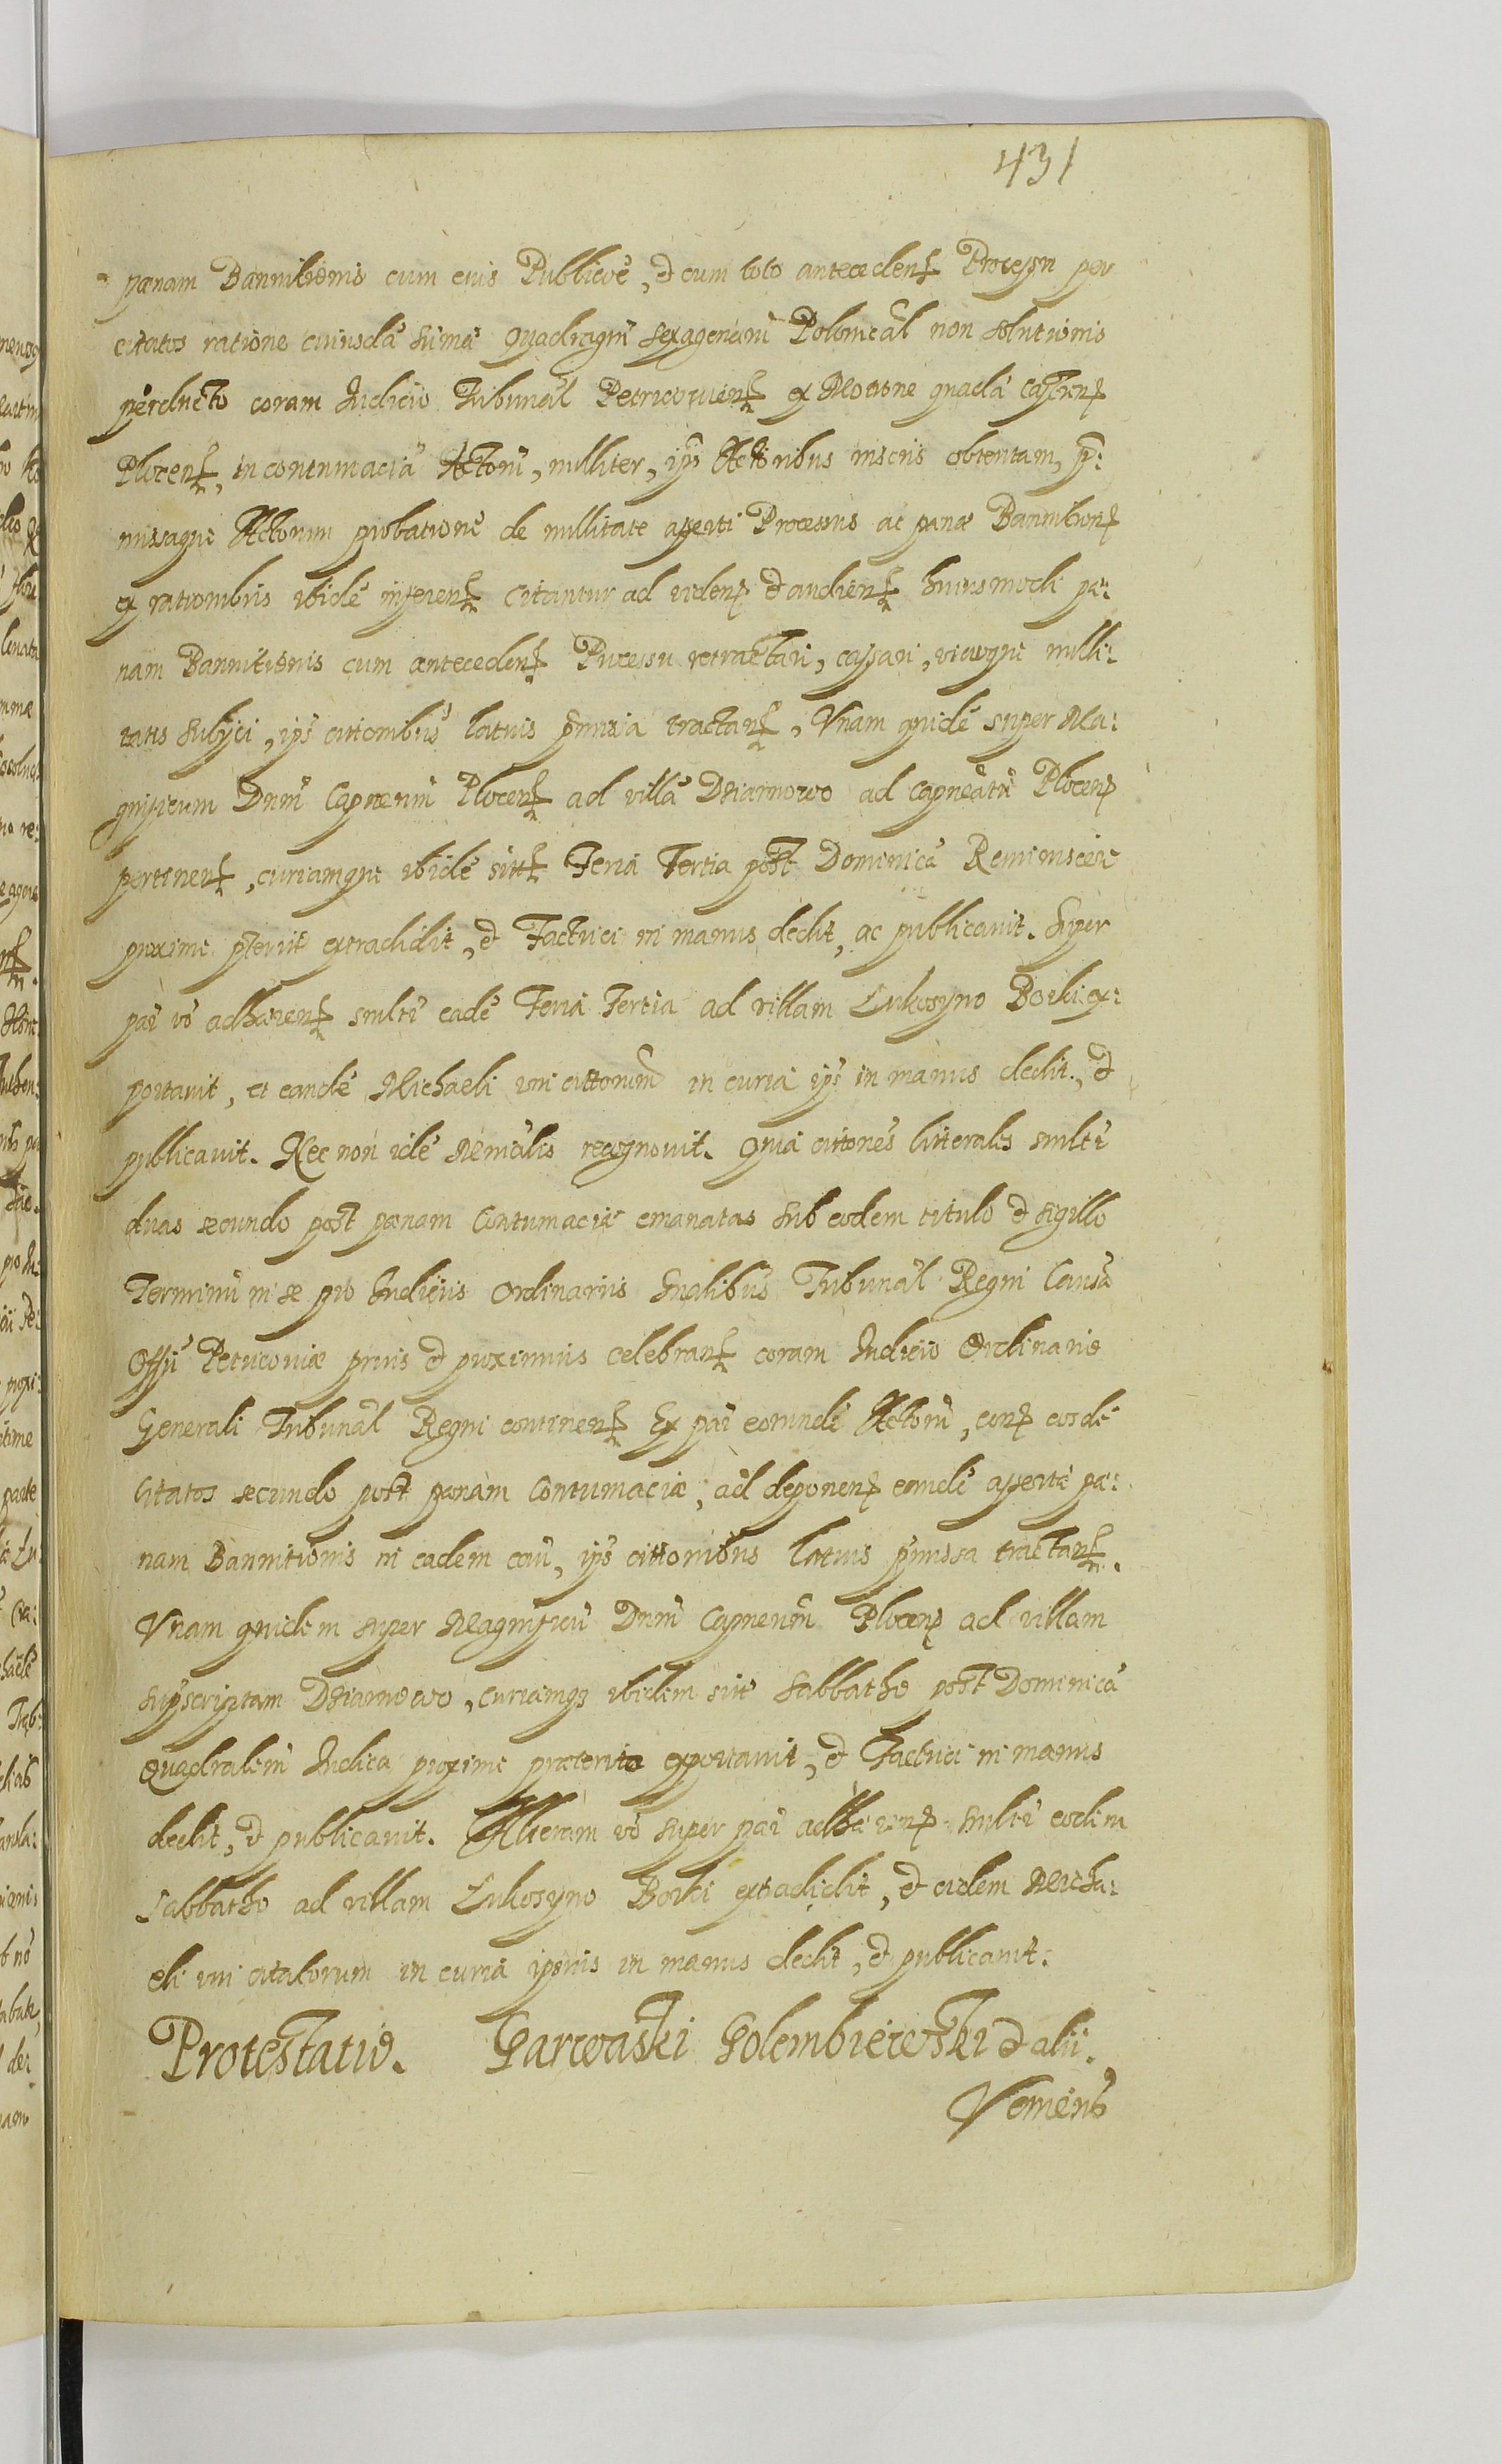 431
pœnam Bannitionis cum eius Publicõe, et cum toto anteceden Processu per
citatos ratione cuiusdã sumæ Quadragin sexagenarũ Polonical non solutionis
perducto coram Iudicio Tribunal Petricovien ex Motione quadã Castren
Plocen, in contumaciã Actorũ, nulliter, ips Actoribus insciis obtentam, p:
missaque Actorum probatione de nullitate asperti Processus ac pœnæ Bannition
ex rationibus ibidẽ inferen citantur ad viden et audien huiusmodi pœ:
nam Bannitionis cum anteceden Processu retractari, cassari, vicioque nulli:
tatis subijci, ips citõnibus latius pmissa tractan, Vnam quidẽ super Ma:
gnificum Dnm Capneum Plocen ad villã Dziarnowo ad Capneatũ Plocen
pertinen, curiamque ibidẽ sit Feria Tertia post Dominicã Reminiscere
proxime pterit extradidit, et Factrici in manus dedit, ac publicavit. Super
par vo adhæren smlri eadẽ Feria Tertia ad villam Lukoszyno Borki ex:
portavit, et eandẽ Michaeli vni cittorum in curia ips in manus dedit, et
publicavit. Nec non idẽ Mẽrialis recognovit. Quia citiones litterales smlri
duas secundo post pœnam Contumaciæ emanatas sub eodem titulo et sigillo
Terminũ in se pro Iudicijs Ordinarijs Gnalibus Tribunal Regni Causa
Offij Petricoviæ primis et proximius celebran coram Iudicio Ordinario
Generali Tribunal Regni continen Ex par eorundẽ Actorũ, con eosdẽ
Citatos secundo post pœnam Contumaciæ, ad deponen eandẽ assertã pœ:
nam Bannitionis in eadem cau, ips cittonibus latius pmissa tractan.
Vnam quidem super Magnificũ Dnm Capneum Plocen ad villam
supscriptam Dziarnowo, curiamq ibidem sit Sabbatho post Dominicã
Quadralem Iudica proxime præterito exportavit, et Factrici in manus
dedit, et publicavit. Alteram vo super par adhæren smlri eodem
Sabbatho ad villam Lukoszyno Borki extradidit, et eidem Micha:
eli vni citatorum in curia ipsius in manus dedit, et publicavit.
Protestatio. Garwaski Golembiewski et alii.
Veniens